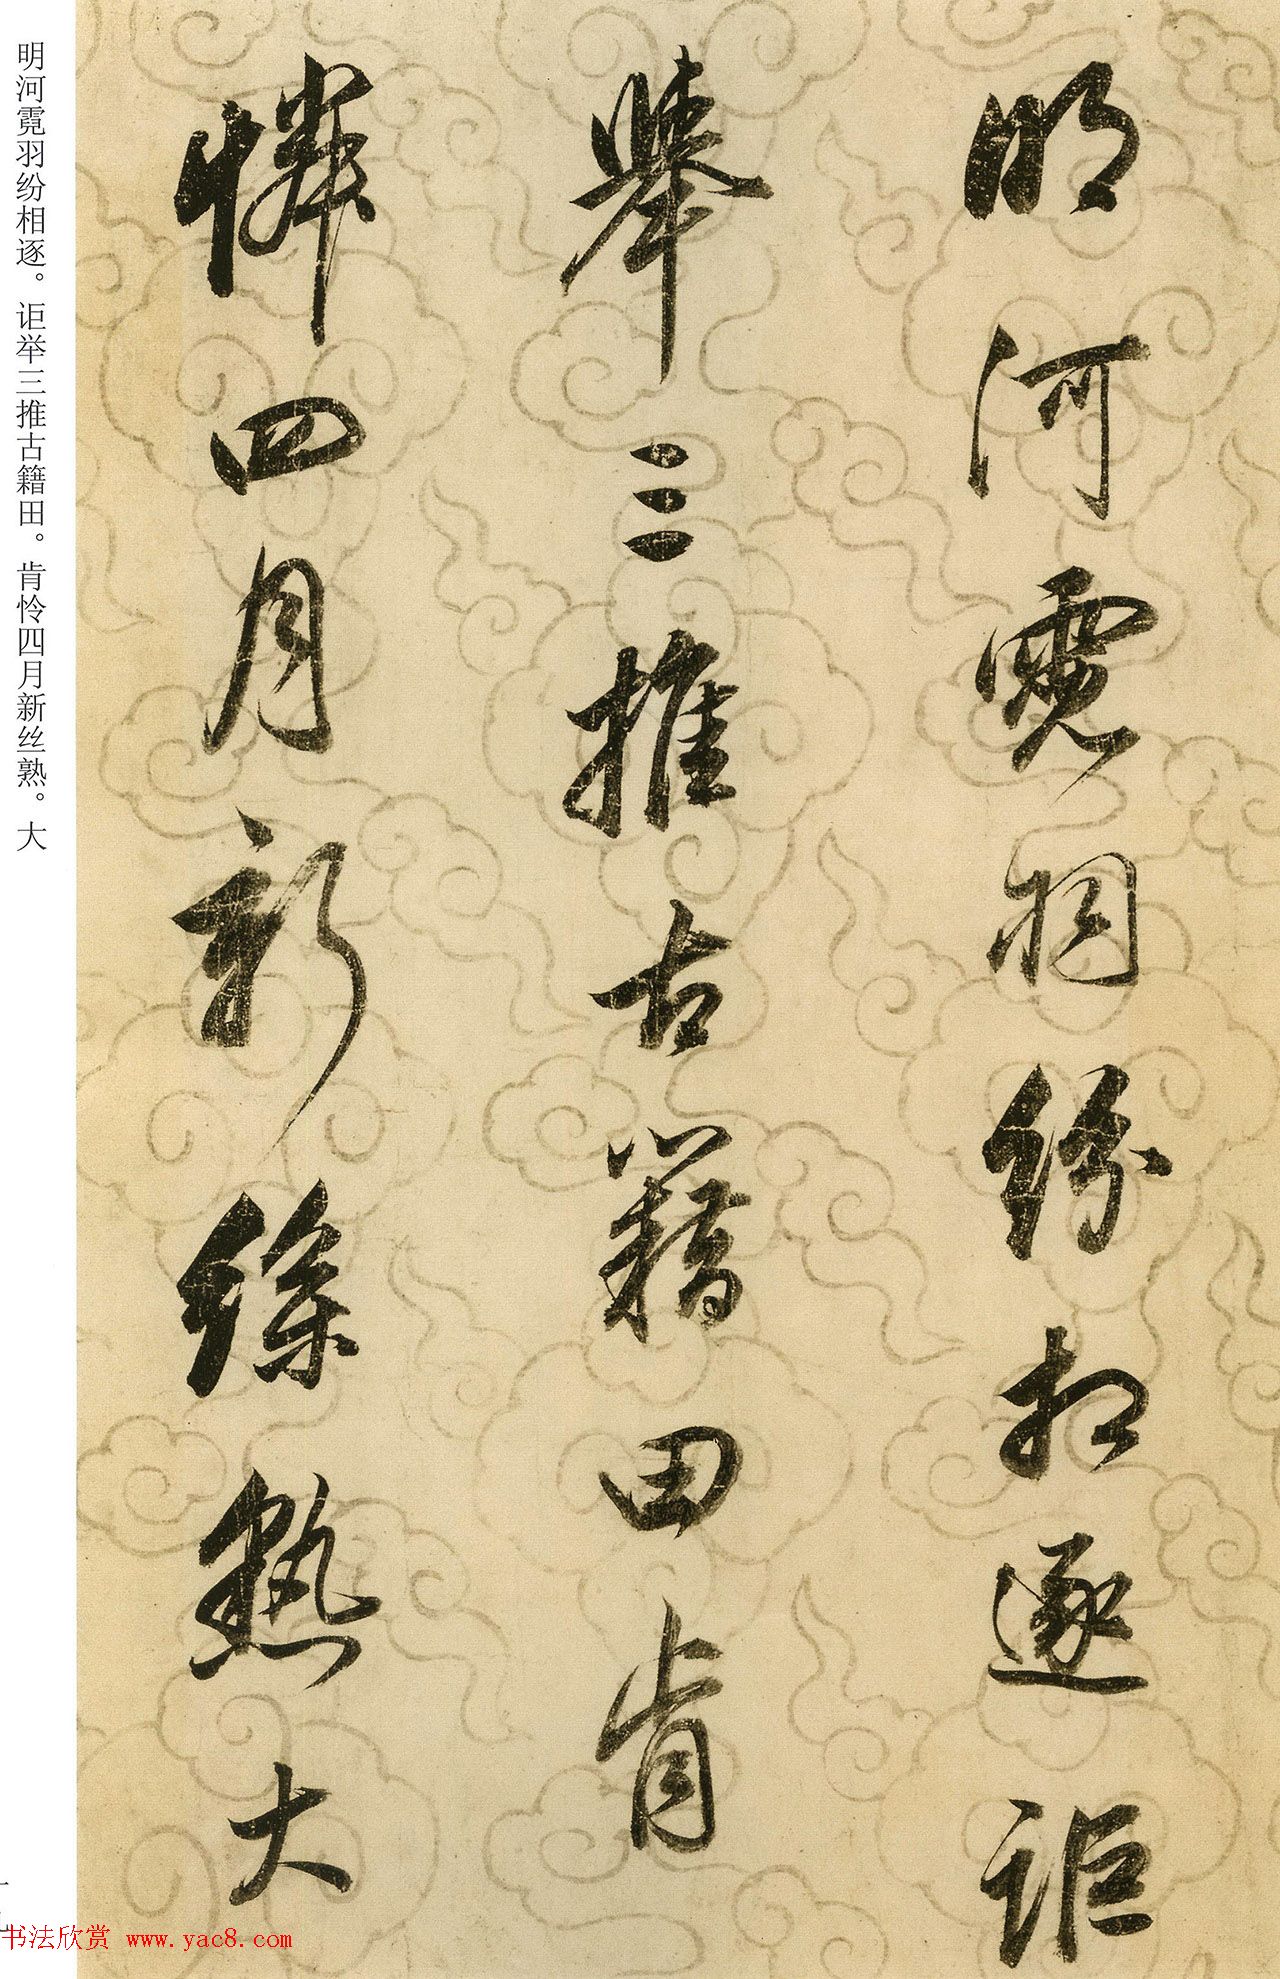 明河霓羽紛相逐詎
舉三推古籍田肯
憐四月新絲熟大
明河霓羽纷相逐。讵举三推古籍田。肯怜四月新丝熟。大
书法欣赏 www.yac8.com